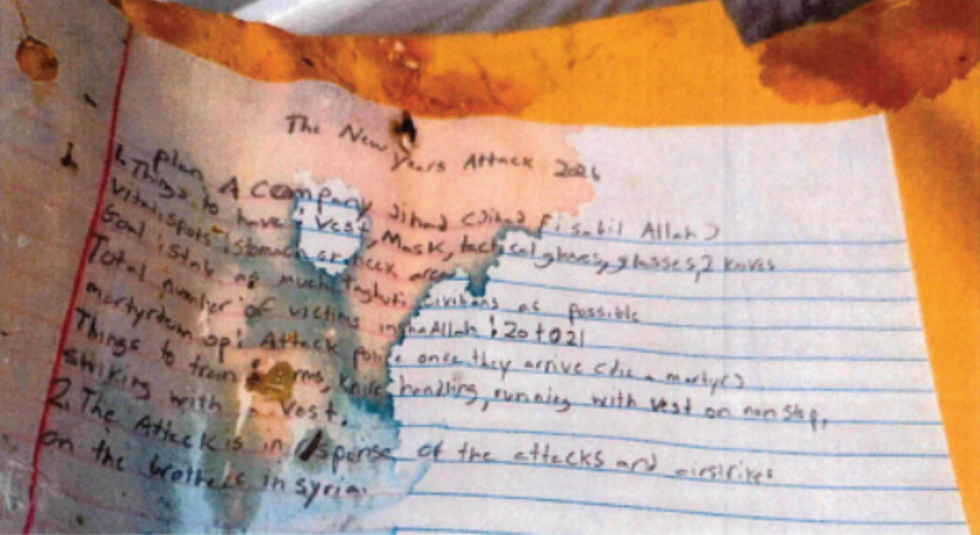 The New Years Attack 2026
Plan A company Jihad (Jihad Fi sabil Allah)
1. Things to have: Vest, Mask, tactical gloves, glasses, 2 knives
Vital spots: stomach or neck area
Goal: stab as much taghuti civilians as possible
Total number of victims inshaAllah: 20 to 21
martyrdom op: Attack police once they arrive (die a martyr)
Things to train: knife handling, running with vest on non stop,
striking with vest.
2. The Attack is in of the attacks and airstrikes
on the brothers in syria.